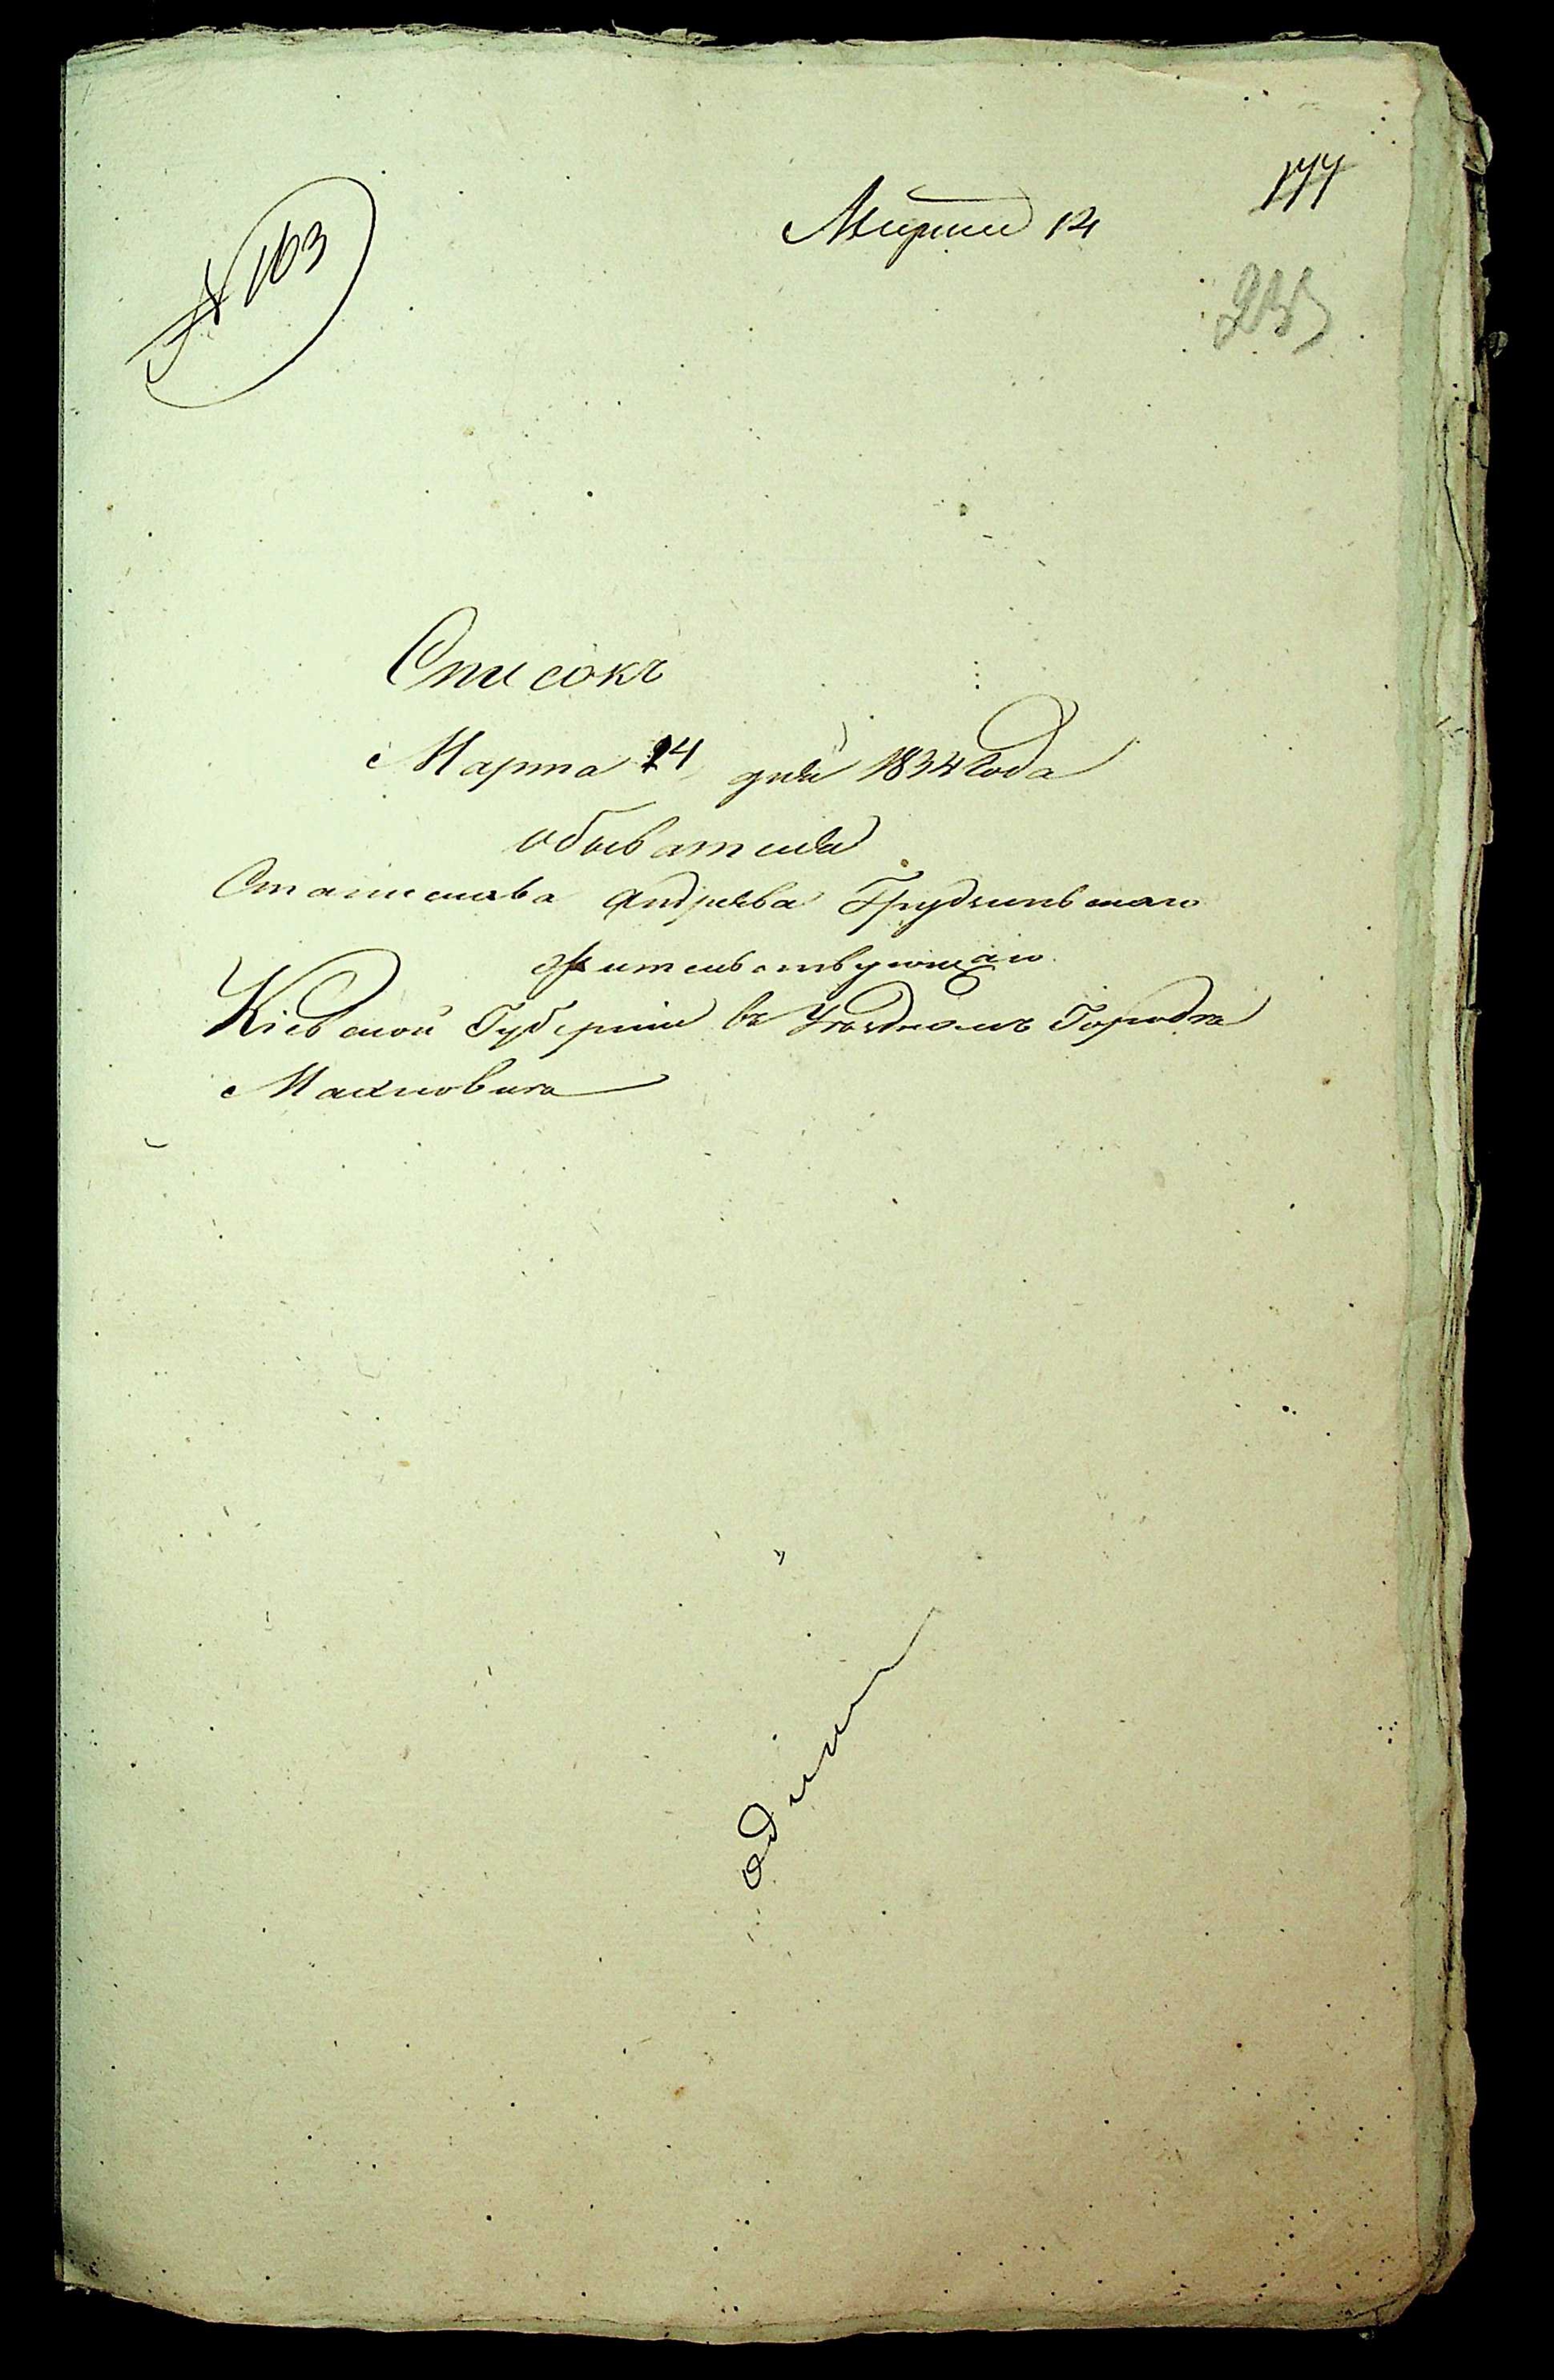 № 163
Марта 14
177
Списокъ
Марта 14 дня 1834 Года
обывателя
Станислава Андреева Грудзинскаго
жительствующаго
Кіевской Губерніи въ Уѣздномъ Городѣ
Махновкѣ
один